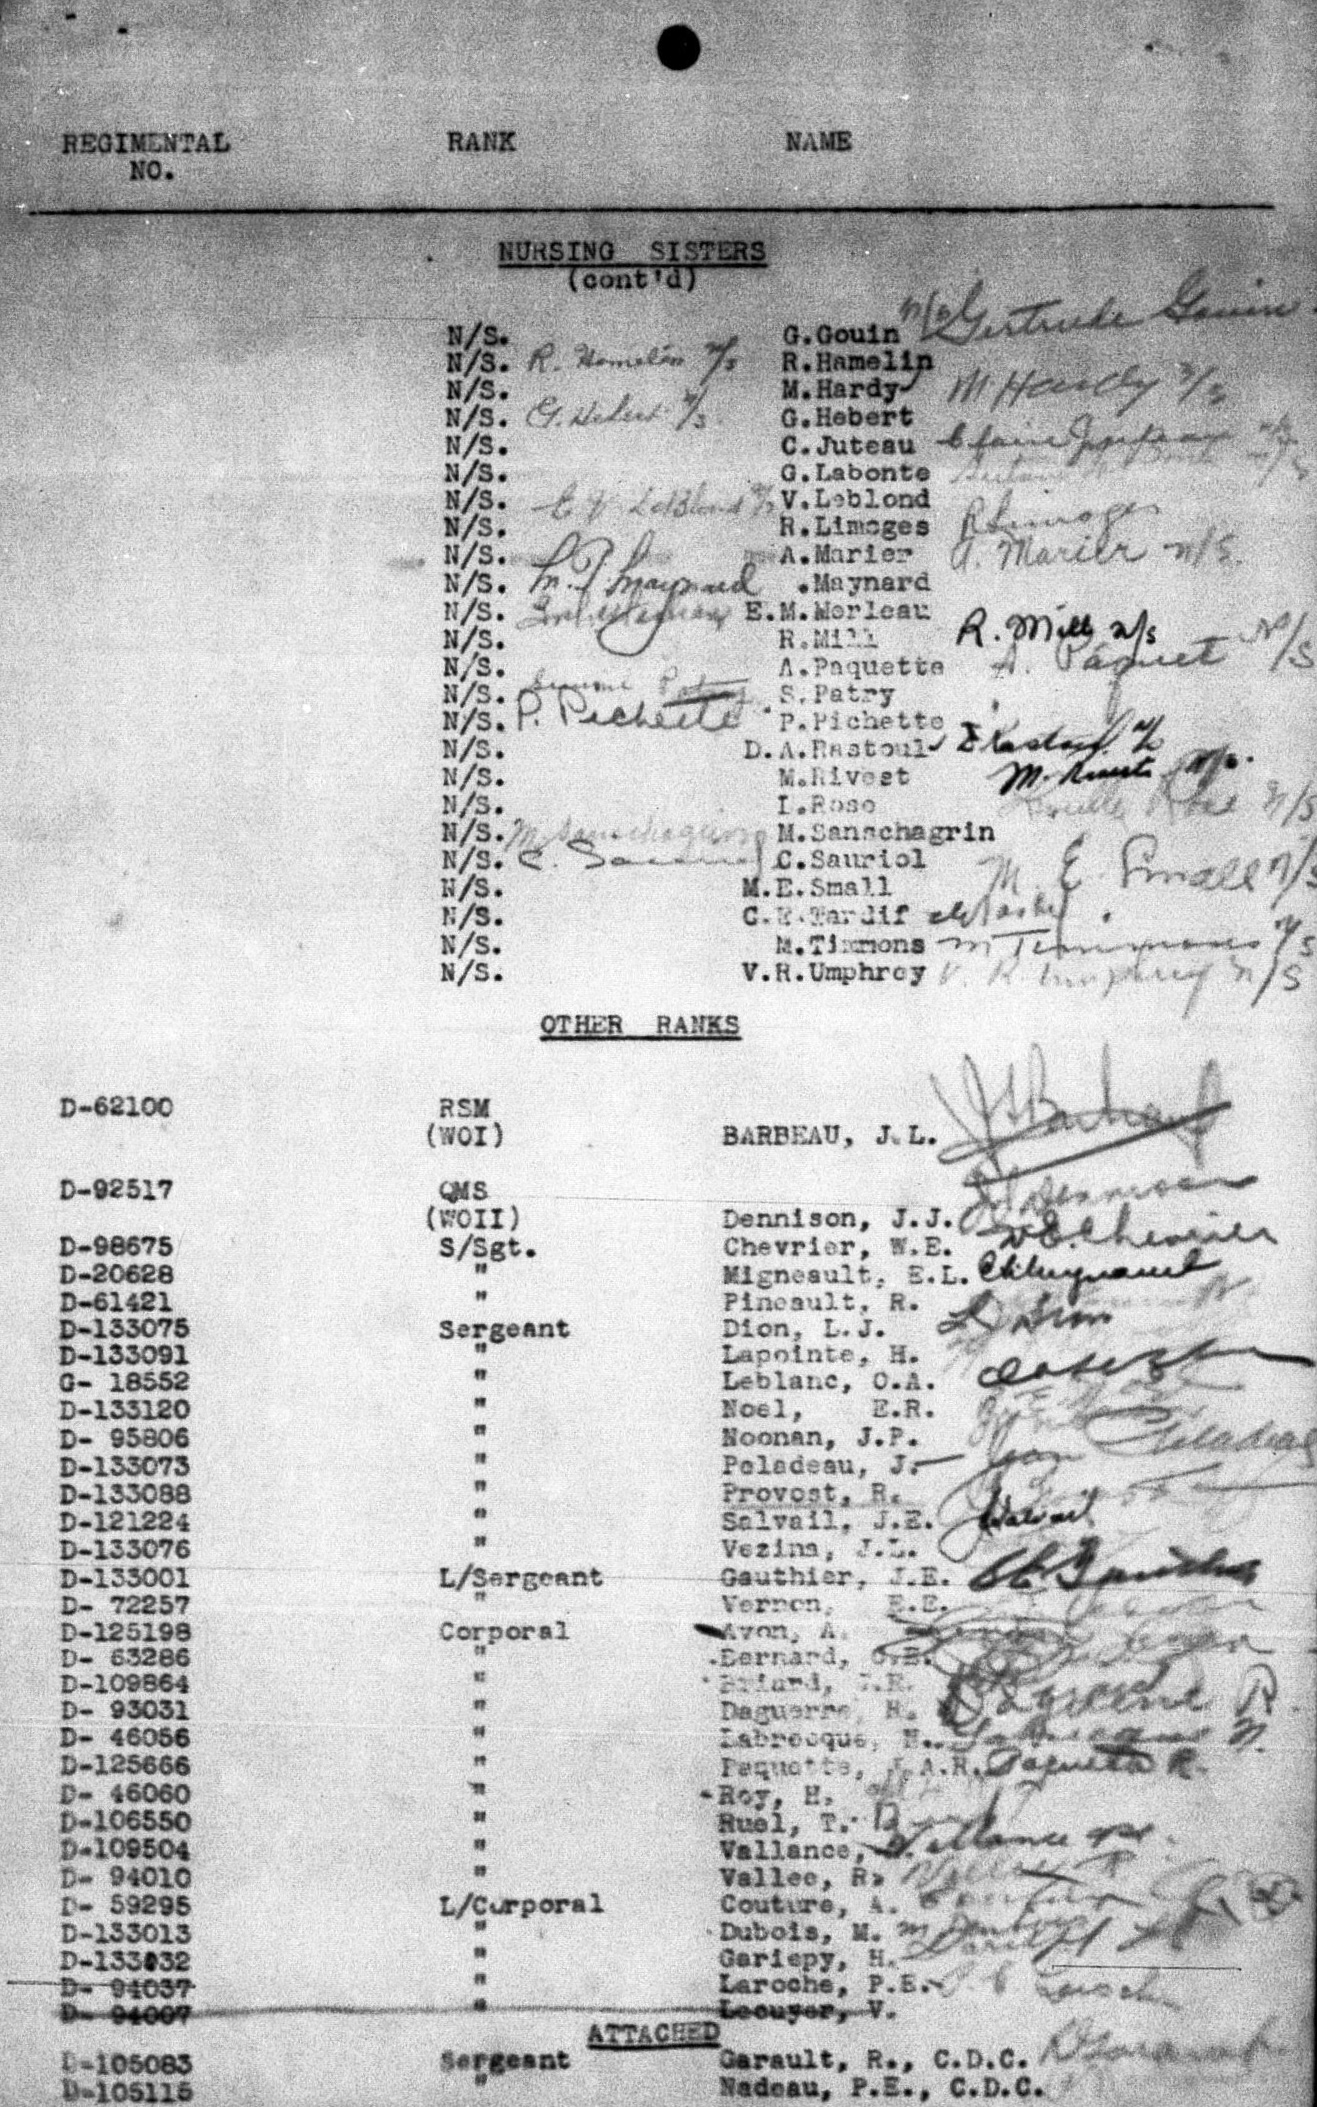 REGIMENTAL RANK NAME
NO.
NURSING SISTERS
(cont'd)
N/S. G.Gouin n/s Gertrude Gouin
N/S. R. Hamelin n/s R.Hamelin
N/S. M.Hardy M Hardy n/s
N/S. G. Hebert n/s G.Hebert
N/S. C.Juteau Claire Juteau n/s
N/S. G.Labonte
N/S. E V LeBlond n/s V.Leblond
N/S. R.Limoges R Limoges
N/S. A.Marier A. Marier n/s
N/S. M. P. Maynard .Maynard
N/S. E.M.Merleau
N/S. R.Mill R. Mill n/s
N/S. A.Paquette A. Paquet N/S
N/S. Simone Patry S.Patry
N/S. P. Pichette P.Pichette
N/S. D.A.Rastoul D Rastoul n/s
N/S. M.Rivest M. Rivest n/s.
N/S. I.Rose Rose N/S
N/S. M Sanschagrin M.Sanschagrin
N/S. C. Sauriol C.Sauriol
N/S. M.E.Small M. E. Small n/s
N/S. C.E.Tardif
N/S. M.Timmons M Timmons n/s
N/S. V.R.Umphrey V. R Umphrey n/s
OTHER RANKS
D-62100 RSM
(WOI) BARBEAU, J.L.
D-92517 QMS Dennison
(WOII) Dennison, J.J.
D-98675 S/Sgt. Chevrier, W.E. W.E. Chevrier
D-20628 " Migneault, E.L.
D-61421 " Pineault, R.
D-133075 Sergeant Dion, L.J. L J Dion
D-133091 " Lapointe, H.
G- 18552 " Leblanc, O.A.
D-133120 " Noel, E.R.
D- 95806 " Noonan, J.P.
D-133073 " Peladeau, J. Jean Peladeau
D-133088 " Provost, R.
D-121224 " Salvail, J.E. Salvail
D-133076 " Vezina, J.L.
D-133001 L/Sergeant Gauthier, J.E. Gauthier
D- 72257 " Vernon, E.E.
D-125198 Corporal Avon, A.
D- 63286 " Bernard, O.E.
D-109864 " Briard, J.E.
D- 93031 " Daguerre, R. Daguerre R.
D- 46056 " Labrecque, N. Labrecque N.
D-125666 " Paquette, J.A.R. Paquette R.
D- 46060 " Roy, H.
D-106550 " Ruel, T.
D-109504 " Vallance, W. Vallance
D- 94010 " Vallee, R. Vallee R
D- 59295 L/Corporal Couture, A. Couture
D-133013 " Dubois, M. M Dubois
D-133032 " Gariepy, H.
D- 94037 " Laroche, P.E.
D- 94007 " Lecuyer, V.
ATTACHED
D-105083 Sergeant Garault, R., C.D.C.
D-105115 " Nadeau, P.E., C.D.C.